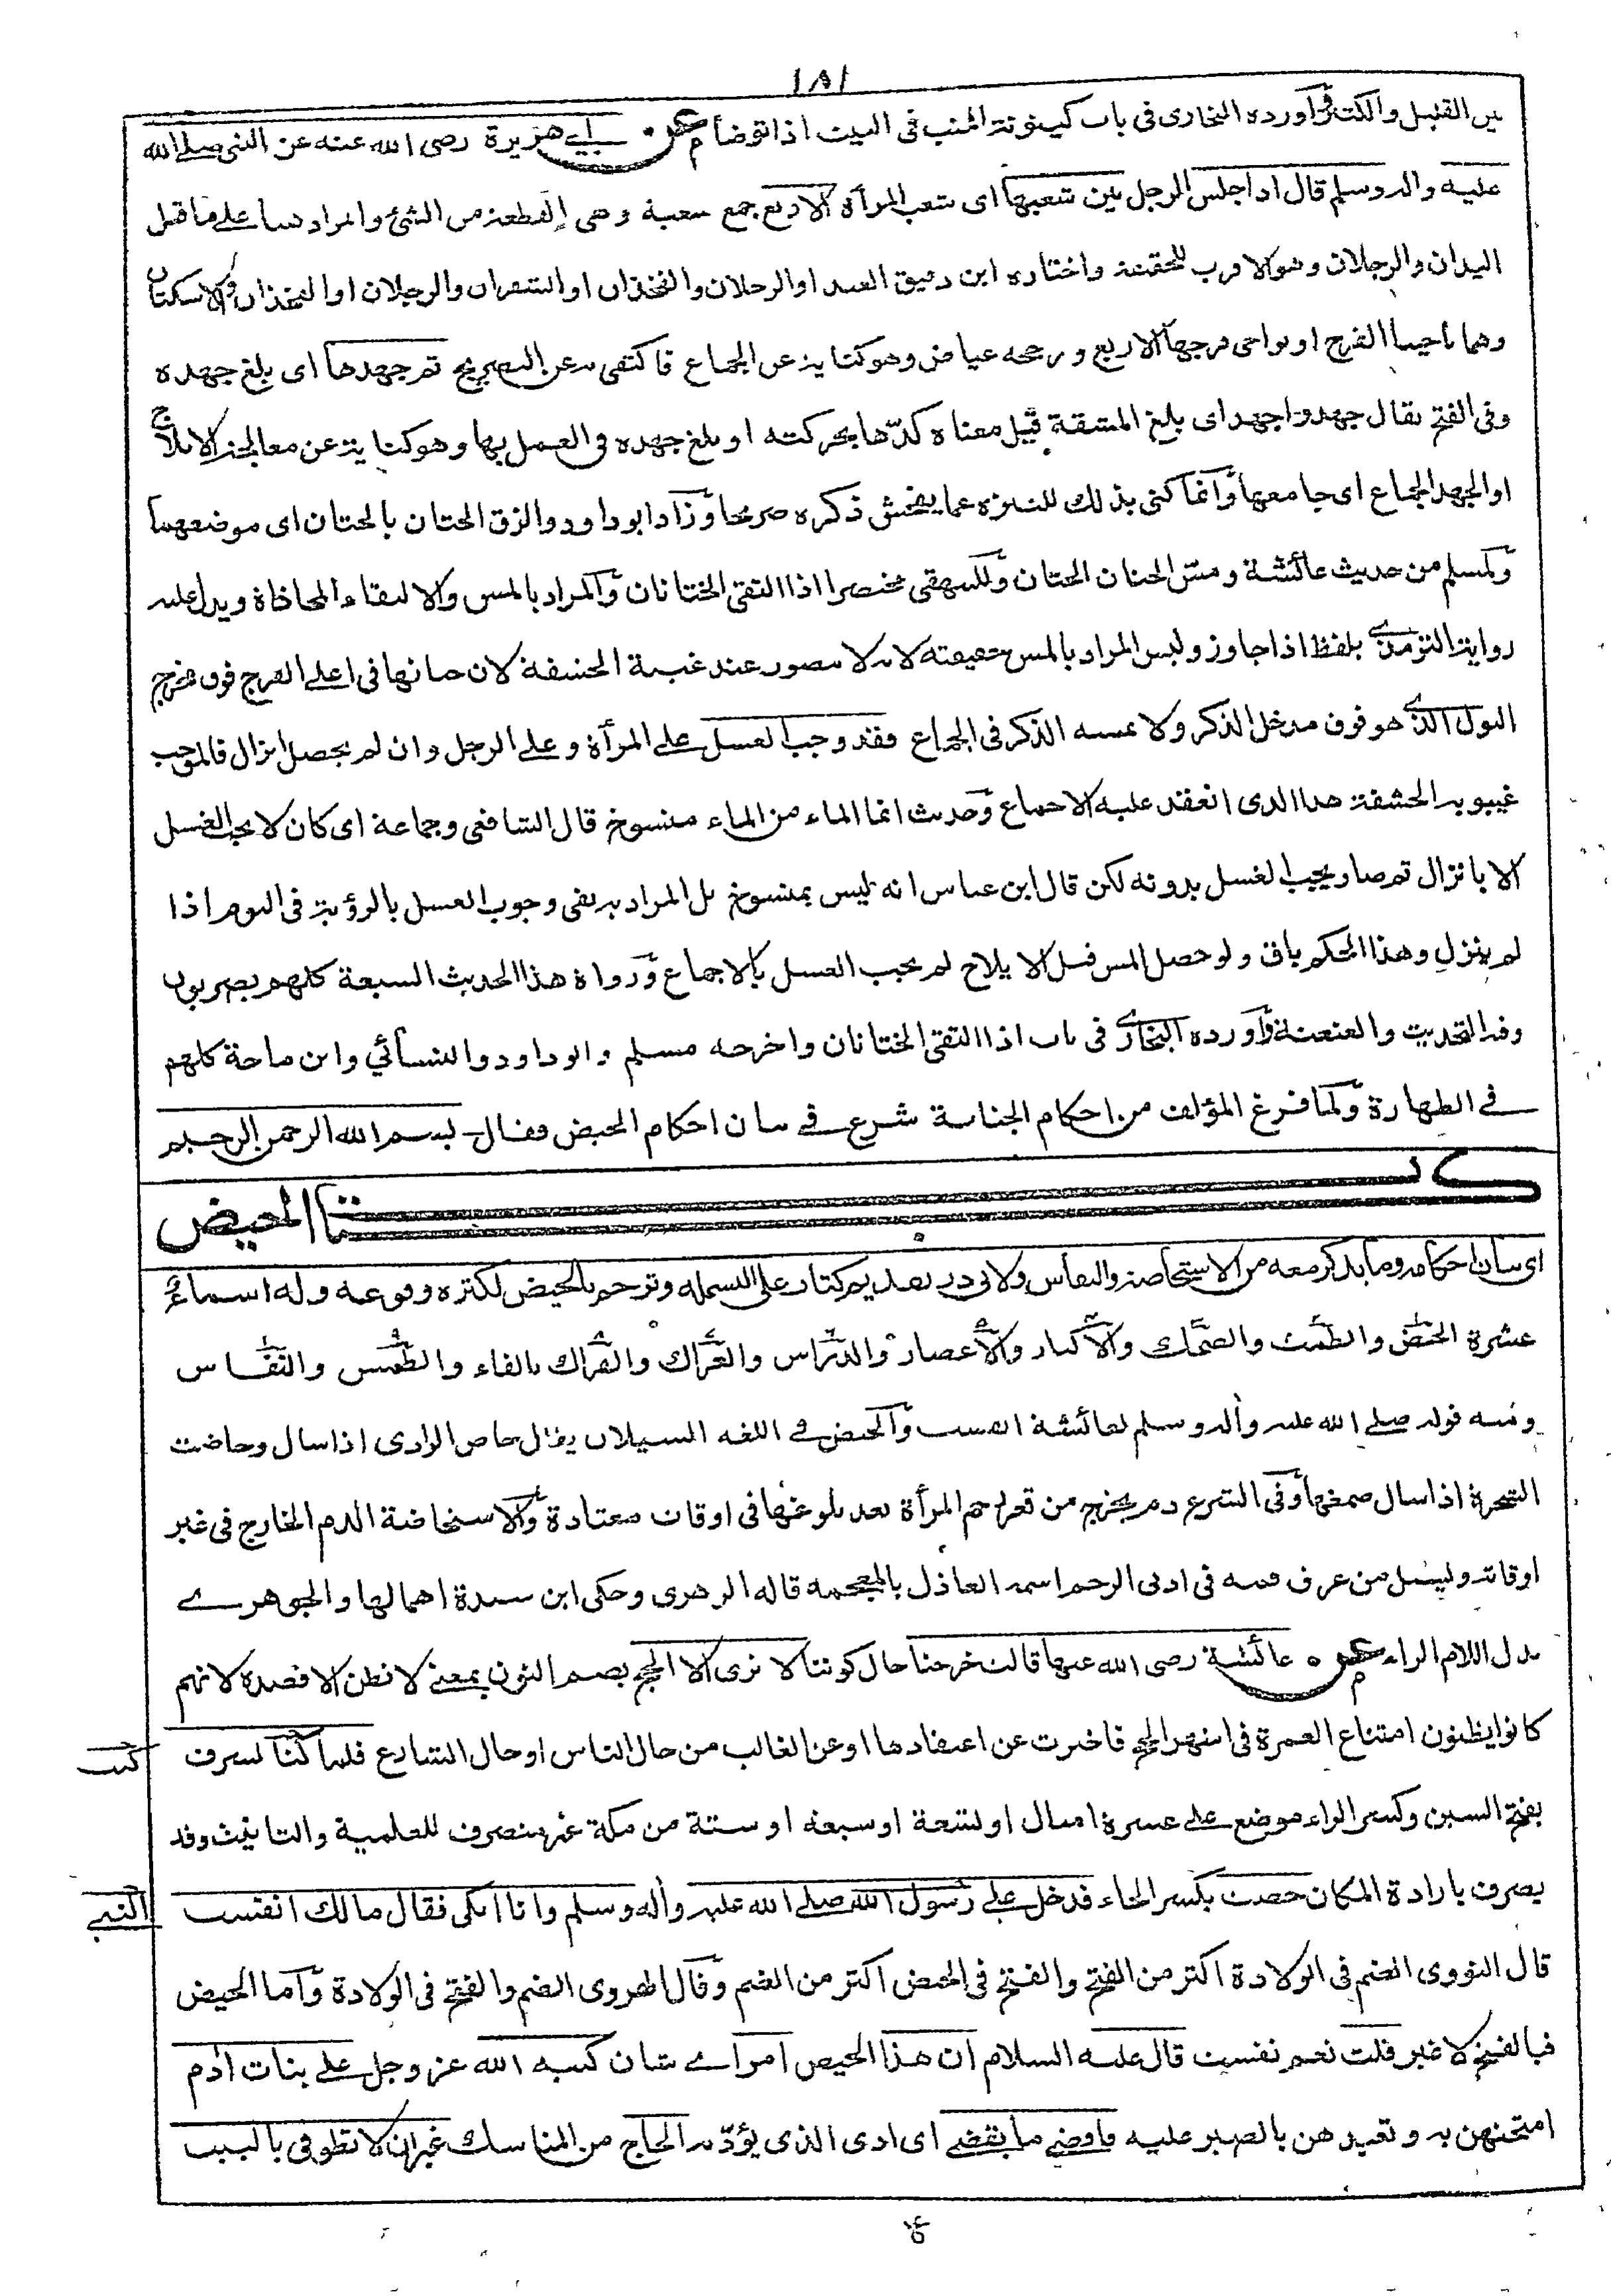 ١٨١
بين القليل والكثير وأورده البخاري في باب كينونة الجنب في البيت اذا توضأ عن ابي هريرة رضى الله عنه عن النبى صلى الله
عليه واله وسلم قال اذا جلس الرجل بين شعبها اى شعب المرأة الاربع جمع شعبة وهى القطعة من الشئ والمراد هنا على ما قيل
اليدان والرجلان وهو الاقرب للحقيقة واختاره ابن دقيق العيد او الرجلان والفخذان او الشفران والرجلان او الفخذان والاسكتان
وهما ناحيتا الفرج او نواحى فرجها الاربع ورجحه عياض وهو كناية عن الجماع فاكتفى به عن التصريح ثم جهدها اى بلغ جهده
وفى الفتح يقال جهد واجهد اى بلغ المشقة قيل معناه كدّها بحركته او بلغ جهده فى العمل بها وهو كناية عن معالجة الايلاج
او الجهد الجماع اى جامعها وانما كنى بذلك للتنزه عما يفحش ذكره صريحا وزاد ابو داود والزق الختان بالختان اى موضعهما
ولمسلم من حديث عائشة ومسّ الختان الختان وللبيهقى مختصرا اذا التقى الختانان والمراد بالمس والالتقاء المحاذاة ويدل عليه
رواية الترمذي بلفظ اذا جاوز وليس المراد بالمس حقيقته لانه لا يتصور عند غيبة الحشفة لان ختانها فى اعلى الفرج فوق مخرج
البول الذي هو فوق مدخل الذكر ولا يمسه الذكر فى الجماع فقد وجب الغسل على المرأة وعلى الرجل وان لم يحصل انزال فالموجب
غيبوبة الحشفة هذا الذى انعقد عليه الاجماع وحديث انما الماء من الماء منسوخ قال الشافعى وجماعة اى كان لا يجب الغسل
الا بانزال ثم صار يجب الغسل بدونه لكن قال ابن عباس انه ليس بمنسوخ بل المراد به نفى وجوب الغسل بالرؤية فى النوم اذا
لم ينزل وهذا الحكم باق ولو حصل المس قبل الايلاج لم يجب الغسل بالاجماع ورواة هذا الحديث السبعة كلهم بصريون
وفيه التحديث والعنعنة وأورده البخاري فى باب اذا التقى الختانان واخرجه مسلم وابو داود والنسائي وابن ماجة كلهم
في الطهارة ولما فرغ المؤلف من احكام الجنابة شرع في بيان احكام الحيض فقال بسم الله الرحمن الرحيم
كتاب الحيض
اى بيان احكامه وما يذكر معه من الاستحاضة والنفاس ولابى ذر تقديم كتاب على البسملة وترجم بالحيض لكثرة وقوعه وله اسماء
عشرة الحيض والطمث والضحك والاكبار والاعصار والدراس والعراك والفراك بالفاء والطمس والنفاس
ومنه قوله صلى الله عليه واله وسلم لعائشة انفست والحيض في اللغه السيلان يقال حاض الوادى اذا سال وحاضت
الشجرة اذا سال صمغها وفى الشرع دم يخرج من قعر رحم المرأة بعد بلوغها فى اوقات معتادة والاستحاضة الدم الخارج فى غير
اوقاته ويسيل من عرف فمه فى ادنى الرحم اسمه العاذل بالمعجمه قاله الزهرى وحكى ابن سيدة اهمالها والجوهري
بدل اللام الراء عن عائشة رضى الله عنها قالت خرجنا حال كوننا لا نرى الا الحج بضم النون بمعنى لا نظن الا قصده لانهم
كانوا يظنون امتناع العمرة فى اشهر الحج فاخبرت عن اعتقادها او عن الغالب من حال الناس او حال الشارع فلما كنا بسرف
كنت
بفتح السين وكسر الراء موضع على عشرة اميال او تسعة او سبعة او ستة من مكة غير منصرف للعلمية والتانيث وقد
يصرف بارادة المكان حضت بكسر الحاء فدخل على رسول الله صلى الله عليه وأله وسلم وانا ابكى فقال مالك انفست
النبي
قال النووى الضم فى الولادة اكثر من الفتح والفتح فى الحيض اكثر من الضم وقال الهروى الضم والفتح فى الولادة واما الحيض
فبالفتح لا غير قلت نعم نفست قال عليه السلام ان هذا الحيض امر اي شان كتبه الله عز وجل على بنات ادم
امتحنهن به وتعبدهن بالصبر عليه فاقضي ما يقضى اى ادى الذى يؤدّيه الحاج من المناسك غير ان لا تطوفى بالبيت